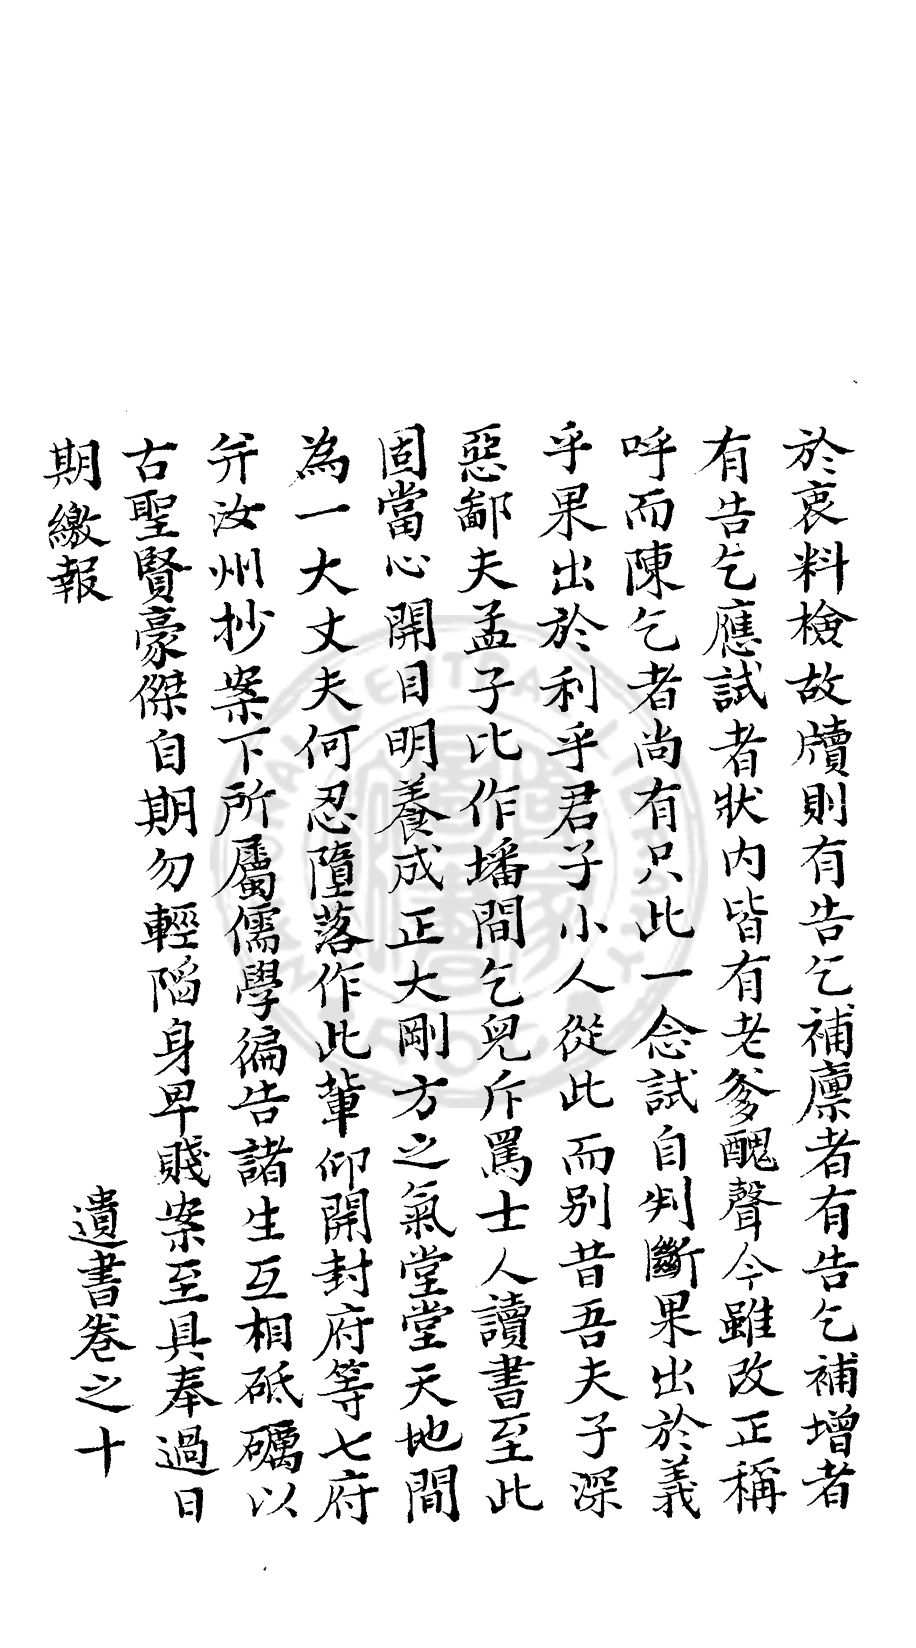 於衷料檢故牘則有告乞補廪者有告乞補增者
有告乞應試者狀内皆有老爹醜聲今雖改正稱
呼而陳乞者尚有只此一念試自判斷果出於義
乎果出於利乎君子小人從此而别昔吾夫子深
惡鄙夫孟子比作墦間乞兒斥罵士人讀書至此
固當心開目明養成正大剛方之氣堂堂天地間
為一大丈夫何忍墮落作此輩仰開封府等七府
并汝州抄案下所屬儒學徧告諸生互相砥礪以
古聖賢豪傑自期勿輕陷身卑賤案至具奉過日
期繳報
遺書卷之十